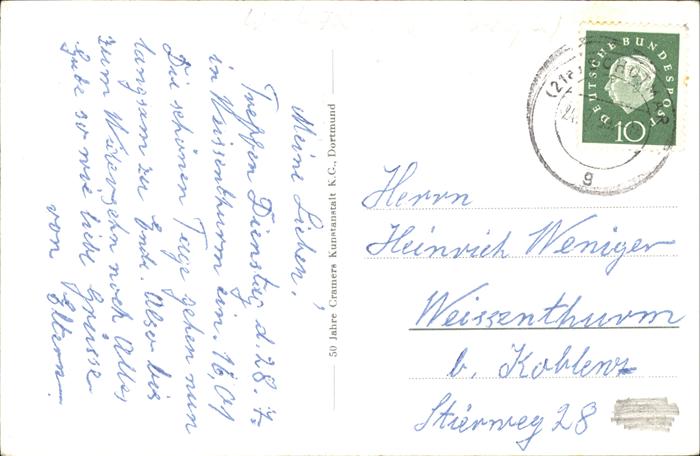 Meine Lieben!
Treffen Dienstag d. 28.7.
in Weissenthurm ein. 16,01
Die schönen Tage gehen nun
langsam zu Ende. Also bis
zum Widersehn noch Alles
Gute so wie liebe Grüsse
von Eltern.
50 Jahre Cramers Kunstanstalt K.G., Dortmund
DEUTSCHE BUNDESPOST
10
(21
g
Herrn
Heinrich Weniger
Weissenthurm
b. Koblenz
Stierweg 28